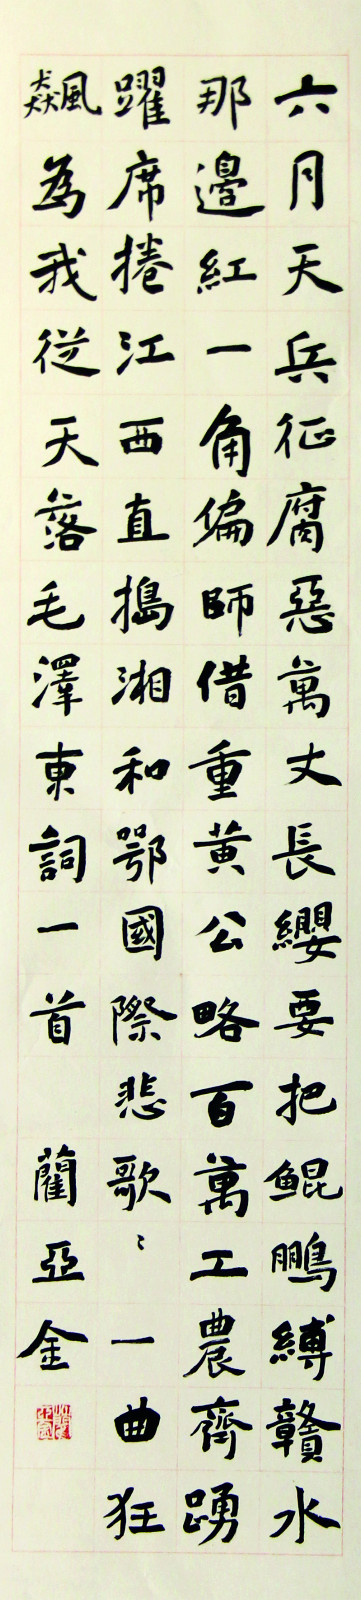 六月天兵征腐惡萬丈長纓要把鯤鵬縛贛水
那邊紅一角偏師借重黃公略百萬工農齊踴
躍席捲江西直搗湘和鄂國際悲歌〻一曲狂
飆為我從天落毛澤東詞一首 藺亞金